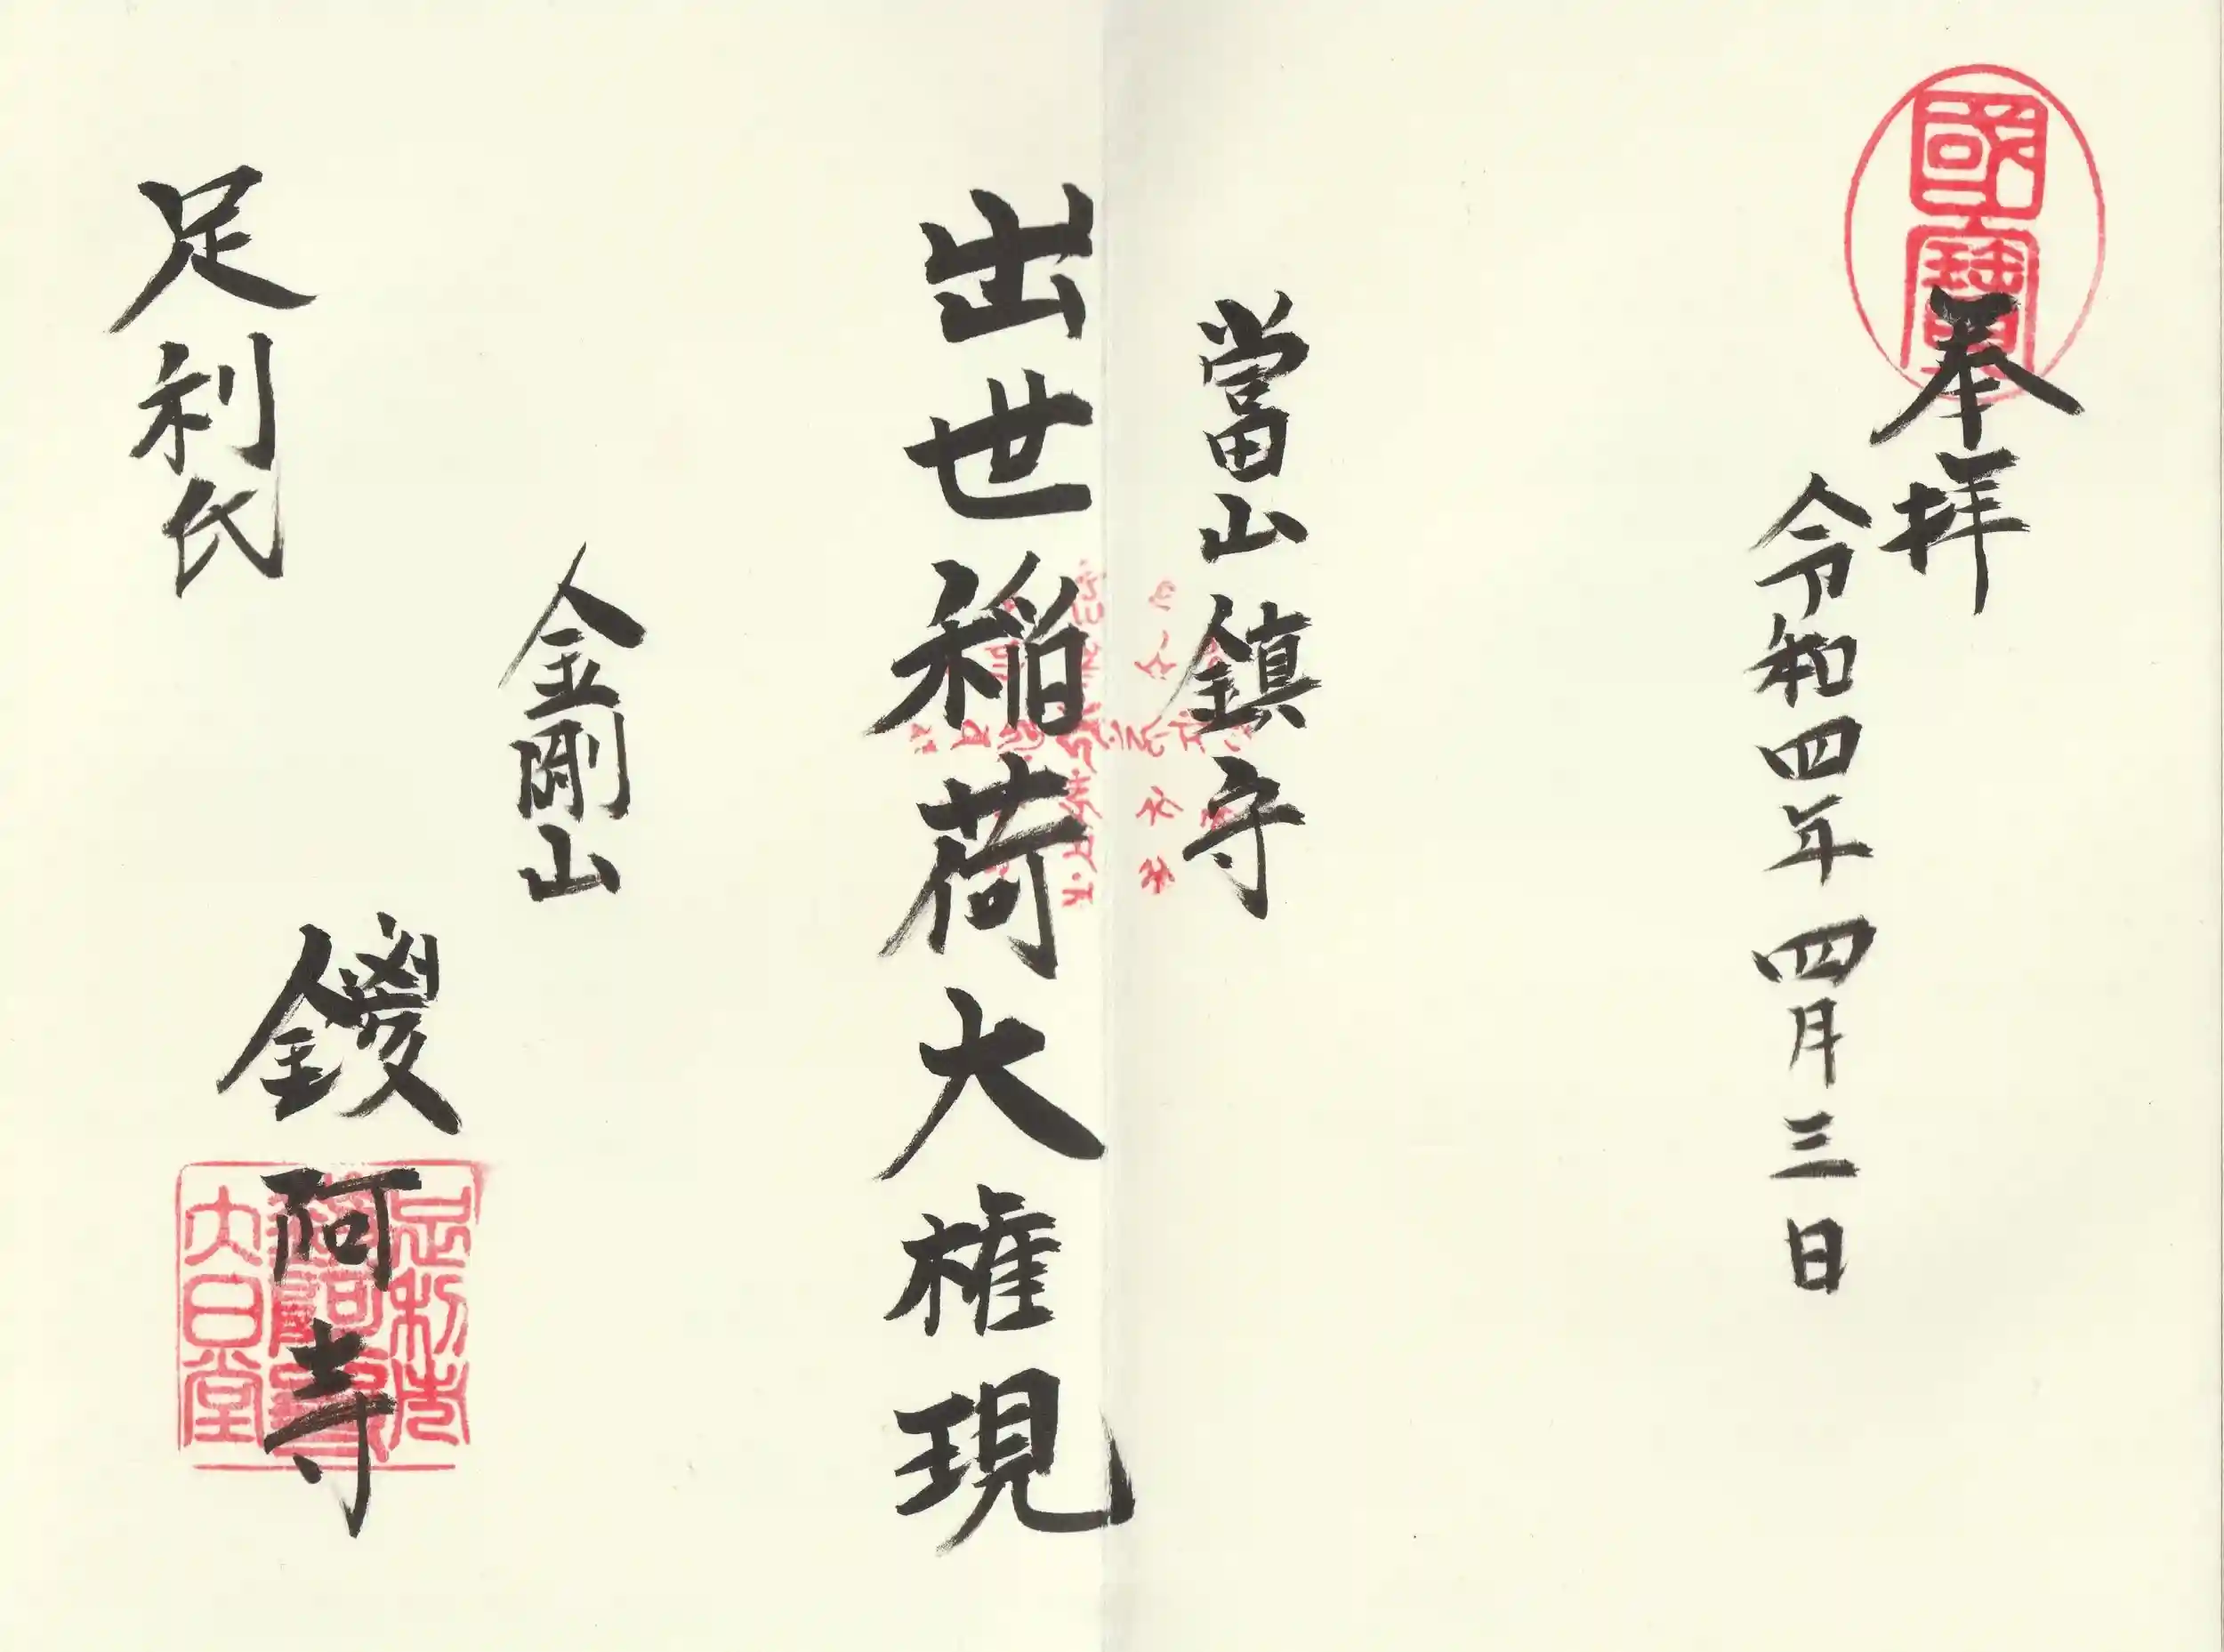 國寶
奉拝
令和四年四月三日
當山鎮守
出世稲荷大権現
金剛山
鑁阿寺
足利氏
足利市
鑁阿寺
大日堂